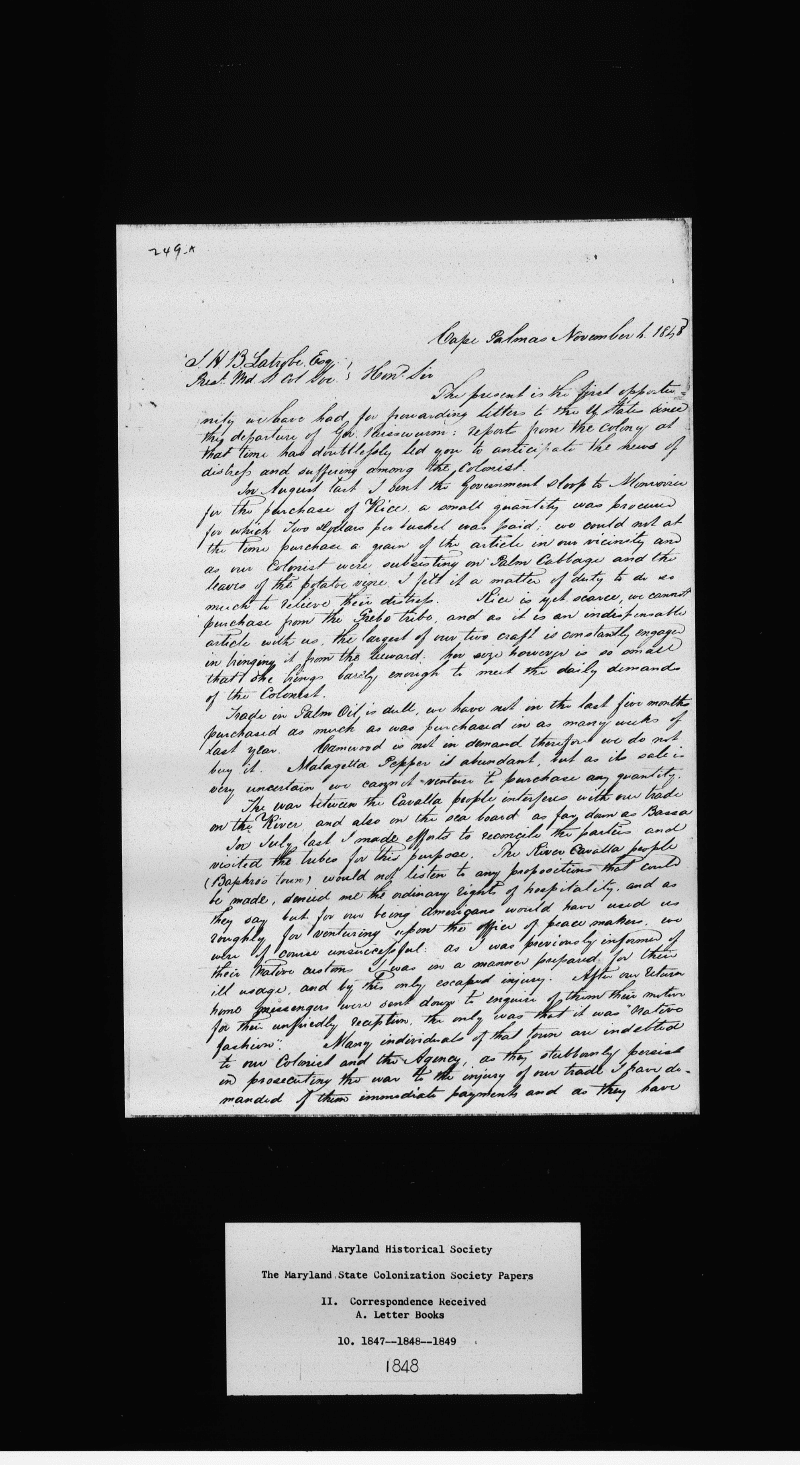 249.*
Cape Palmas November 4. 1848
J. H. B Latrobe, Esq.
Prest. Md. St Col Soc. } Hond. Sir
The present is the first opportu=
nity we have had for forwarding letters to the U States since
the departure of Gov. Russwurm: report from the colony at
that time has doubtlessly led you to anticipate the news of
distress and suffering among the Colonist.
In August last I sent the Government Sloop to Monrovia
for the purchase of Rice, a small quantity was procured
for which Two Dollars per bushel was paid; we could not at
the time purchase a grain of the article in our vicinity and
as our Colonist were subsisting on Palm Cabbage and the
leaves of the potatoe vine I felt it a matter of duty to do so
much to relieve their distress. Rice is yet scarce, we cannot
purchase from the Grebo tribe, and as it is an indispensable
article with us, the largest of our two craft is constantly engaged
in bringing it from the leeward; her size however is so small
that she brings barely enough to meet the daily demands
of the Colonist.
Trade in Palm Oil is dull, we have not in the last five months
purchased as much as was purchased in as many weeks of
last year. Camwood is not in demand therefore we do not
buy it. Malagetta Pepper is abundant, but as its sale is
very uncertain we cannot venture to purchase any quantity.
The war between the Cavalla people interferes with our trade
on the River and also on the sea board as far down as Bassa
In July last I made efforts to reconcile the parties and
visited the tribes for this purpose. The River Cavalla people
(Baphro's town) would not listen to any propositions that could
be made, denied me the ordinary rights of hospitality, and as
they say but for our being Americans would have used us
roughly for venturing upon the office of peace makers. we
were of course unsuccessful: as I was previously informed of
their Native customs I was in a manner prepared for their
ill usage, and by this only escaped injury. After our return
home messengers were sent down to enquire of them their motive
for their unfriedly reception, the only was that it was "Native
fashion". Many individuals of that town are indebted
to our Colonist and the Agency, as they stubbornly persist
in prosecuting the war to the injury of our trade I have de-
manded of them immediate payments and as they have
Maryland Historical Society
The Maryland State Colonization Society Papers
II. Correspondence Received
A. Letter Books
10. 1847--1848--1849
1848